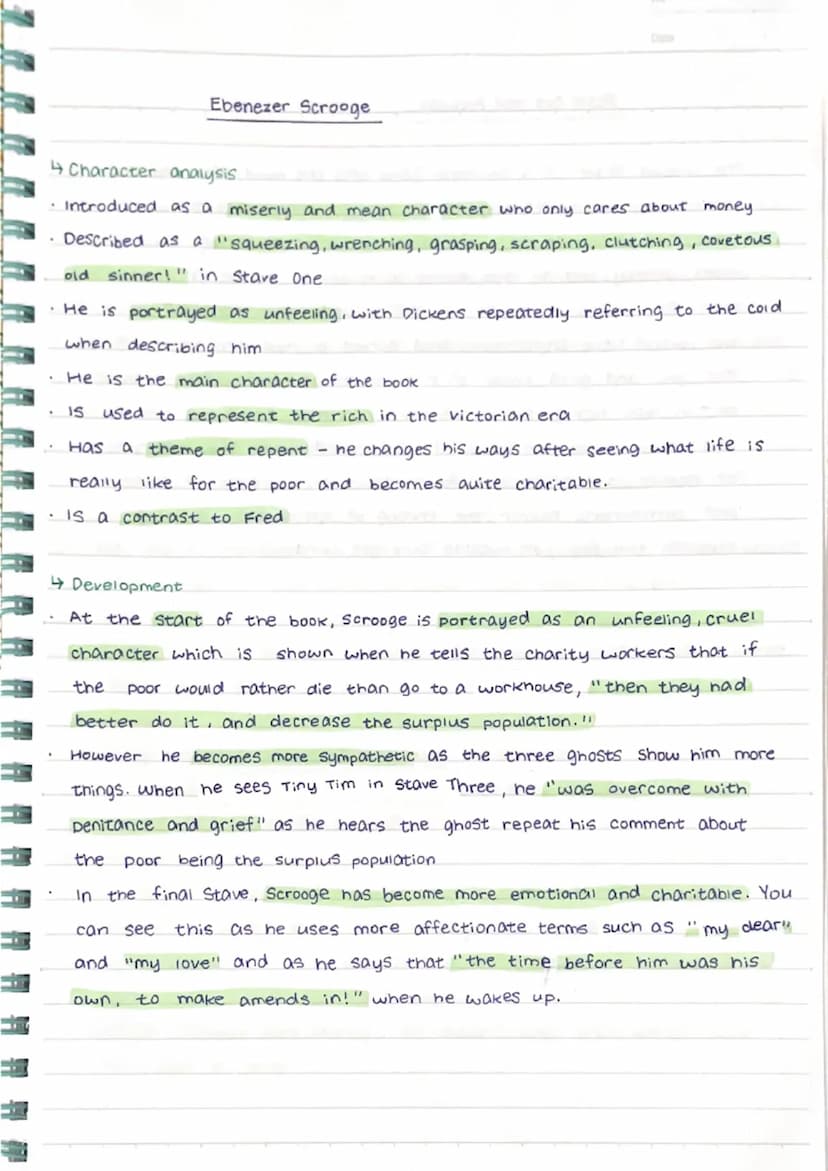 Date
Ebenezer Scrooge
↳ Character analysis
· Introduced as a miserly and mean character who only cares about money
· Described as a "squeezing, wrenching, grasping, scraping, clutching, covetous
old sinner!" in Stave One
· He is portrayed as unfeeling, with Dickens repeatedly referring to the cold
when describing him
· He is the main character of the book
· Is used to represent the rich in the Victorian era
· Has a theme of repent - he changes his ways after seeing what life is
really like for the poor and becomes quite charitable.
· Is a contrast to Fred
↳ Development
· At the start of the book, Scrooge is portrayed as an unfeeling, cruel
character which is shown when he tells the charity workers that if
the poor would rather die than go to a workhouse, "then they had
better do it, and decrease the surplus population."
· However he becomes more sympathetic as the three ghosts show him more
things. When he sees Tiny Tim in Stave Three, he "was overcome with
penitance and grief" as he hears the ghost repeat his comment about
the poor being the surplus population
· In the final Stave, Scrooge has become more emotional and charitable. You
can see this as he uses more affectionate terms such as "my dear"
and "my love" and as he says that "the time before him was his
own, to make amends in!" when he wakes up.